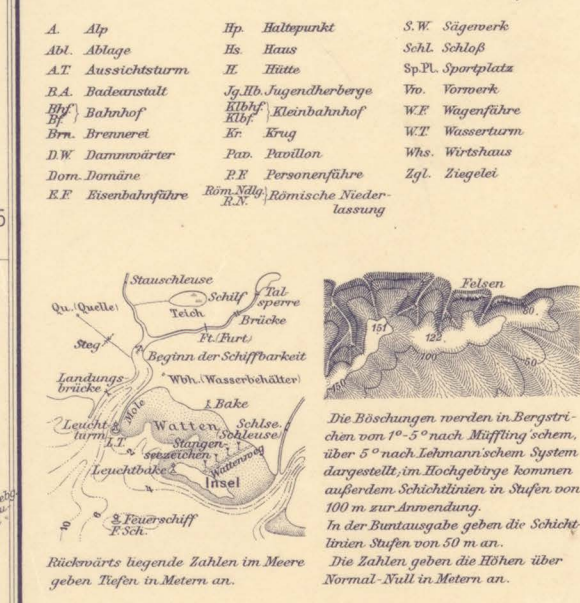 A. Alp
Abl. Ablage
A.T. Aussichtsturm
B.A. Badeanstalt
Bhf. Bf. } Bahnhof
Brn. Brennerei
D.W. Dammwärter
Dom. Domäne
E.F. Eisenbahnfähre
Hp. Haltepunkt
Hs. Haus
H. Hütte
Jg.Hb. Jugendherberge
Klbhf. Klbf. } Kleinbahnhof
Kr. Krug
Pav. Pavillon
P.F. Personenfähre
Röm.Ndlg. R.N. } Römische Nieder-
lassung
S.W. Sägewerk
Schl. Schloß
Sp.Pl. Sportplatz
Vw. Vorwerk
W.F. Wagenfähre
W.T. Wasserturm
Whs. Wirtshaus
Zgl. Ziegelei
Stauschleuse
Qu. (Quelle)
Schilf
Teich
Tal-
sperre
Brücke
Ft. (Furt)
Steg
Beginn der Schiffbarkeit
Landungs-
brücke
Wbh. (Wasserbehälter)
Mole
Bake
Leucht-
turm
L.T.
Watten
Schlse.
(Schleuse)
Stangen-
seezeichen
Wattenweg
Leuchtbake
Insel
2
4
6
10
Feuerschiff
F.Sch.
Rückwärts liegende Zahlen im Meere
geben Tiefen in Metern an.
Felsen
151
122
100
80
50
150
Die Böschungen werden in Bergstri-
chen von 1°-5° nach Müffling'schem,
über 5° nach Lehmann'schem System
dargestellt; im Hochgebirge kommen
außerdem Schichtlinien in Stufen von
100 m zur Anwendung.
In der Buntausgabe geben die Schicht-
linien Stufen von 50 m an.
Die Zahlen geben die Höhen über
Normal-Null in Metern an.